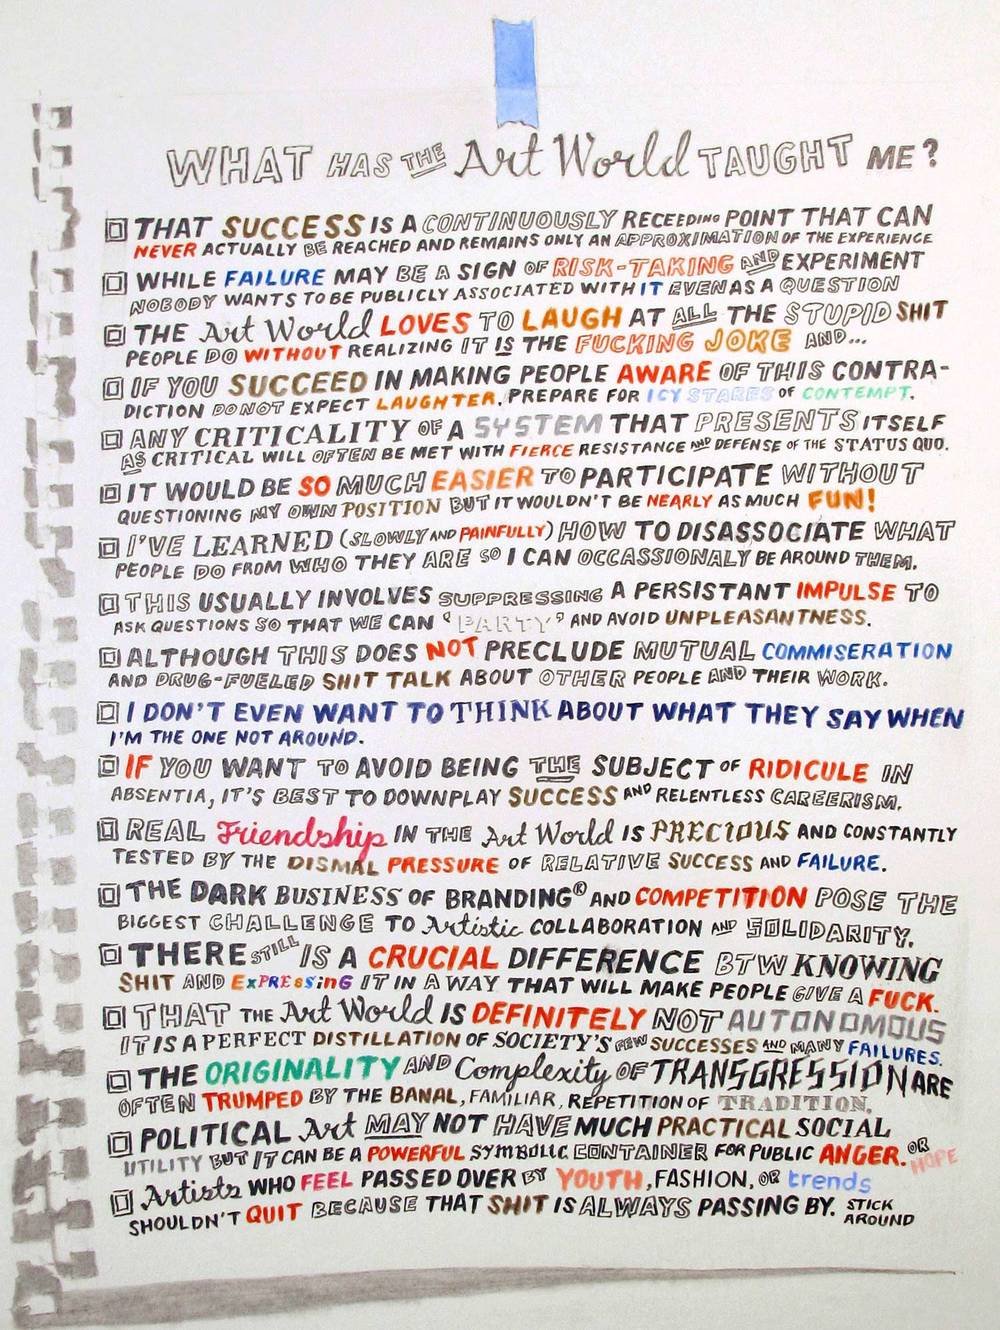 WHAT HAS THE Art World TAUGHT ME?
THAT SUCCESS IS A CONTINUOUSLY RECEEDING POINT THAT CAN
NEVER ACTUALLY BE REACHED AND REMAINS ONLY AN APPROXIMATION OF THE EXPERIENCE
WHILE FAILURE MAY BE A SIGN OF RISK-TAKING AND EXPERIMENT
NOBODY WANTS TO BE PUBLICLY ASSOCIATED WITH IT EVEN AS A QUESTION
THE Art World LOVES TO LAUGH AT ALL THE STUPID SHIT
PEOPLE DO WITHOUT REALIZING IT IS THE FUCKING JOKE AND...
IF YOU SUCCEED IN MAKING PEOPLE AWARE OF THIS CONTRA-
DICTION DO NOT EXPECT LAUGHTER. PREPARE FOR ICY STARES OF CONTEMPT.
ANY CRITICALITY OF A SYSTEM THAT PRESENTS ITSELF
AS CRITICAL WILL OFTEN BE MET WITH FIERCE RESISTANCE AND DEFENSE OF THE STATUS QUO.
IT WOULD BE SO MUCH EASIER TO PARTICIPATE WITHOUT
QUESTIONING MY OWN POSITION BUT IT WOULDN'T BE NEARLY AS MUCH FUN!
I'VE LEARNED (SLOWLY AND PAINFULLY) HOW TO DISASSOCIATE WHAT
PEOPLE DO FROM WHO THEY ARE SO I CAN OCCASSIONALY BE AROUND THEM.
THIS USUALLY INVOLVES SUPPRESSING A PERSISTANT IMPULSE TO
ASK QUESTIONS SO THAT WE CAN 'PARTY' AND AVOID UNPLEASANTNESS.
ALTHOUGH THIS DOES NOT PRECLUDE MUTUAL COMMISERATION
AND DRUG-FUELED SHIT TALK ABOUT OTHER PEOPLE AND THEIR WORK.
I DON'T EVEN WANT TO THINK ABOUT WHAT THEY SAY WHEN
I'M THE ONE NOT AROUND.
IF YOU WANT TO AVOID BEING THE SUBJECT OF RIDICULE IN
ABSENTIA, IT'S BEST TO DOWNPLAY SUCCESS AND RELENTLESS CAREERISM.
REAL Friendship IN THE Art World IS PRECIOUS AND CONSTANTLY
TESTED BY THE DISMAL PRESSURE OF RELATIVE SUCCESS AND FAILURE.
THE DARK BUSINESS OF BRANDING® AND COMPETITION POSE THE
BIGGEST CHALLENGE TO Artistic COLLABORATION AND SOLIDARITY.
THERE STILL IS A CRUCIAL DIFFERENCE BTW KNOWING
SHIT AND ExPREssiNG IT IN A WAY THAT WILL MAKE PEOPLE GIVE A FUCK.
THAT THE Art World IS DEFINITELY NOT AUTONOMOUS
IT IS A PERFECT DISTILLATION OF SOCIETY'S FEW SUCCESSES AND MANY FAILURES.
THE ORIGINALITY AND Complexity OF TRANSGRESSION ARE
OFTEN TRUMPED BY THE BANAL, FAMILIAR, REPETITION OF TRADITION.
POLITICAL Art MAY NOT HAVE MUCH PRACTICAL SOCIAL
UTILITY BUT IT CAN BE A POWERFUL SYMBOLIC CONTAINER FOR PUBLIC ANGER. OR HOPE
Artists WHO FEEL PASSED OVER BY YOUTH, FASHION, OR trends
SHOULDN'T QUIT BECAUSE THAT SHIT IS ALWAYS PASSING BY. STICK AROUND